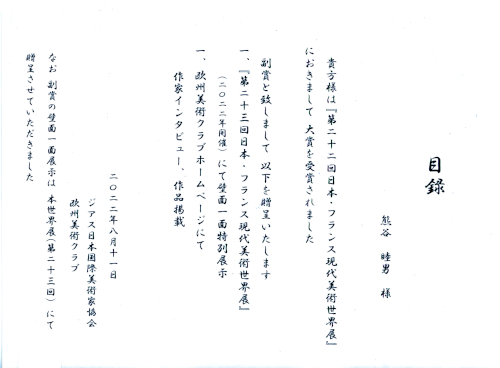 目録
熊谷 睦男 様
貴方様は『第二十二回日本・フランス現代美術世界展』
におきまして 大賞を受賞されました
副賞と致しまして 以下を贈呈いたします
一、『第二十三回日本・フランス現代美術世界展』
（二〇二二年開催）にて壁面一面特別展示
一、欧州美術クラブホームページにて
作家インタビュー、作品掲載
二〇二二年八月十一日
ジアス日本国際美術家協会
欧州美術クラブ
なお 副賞の壁面一面展示は 本世界展(第二十三回)にて
贈呈させていただきました